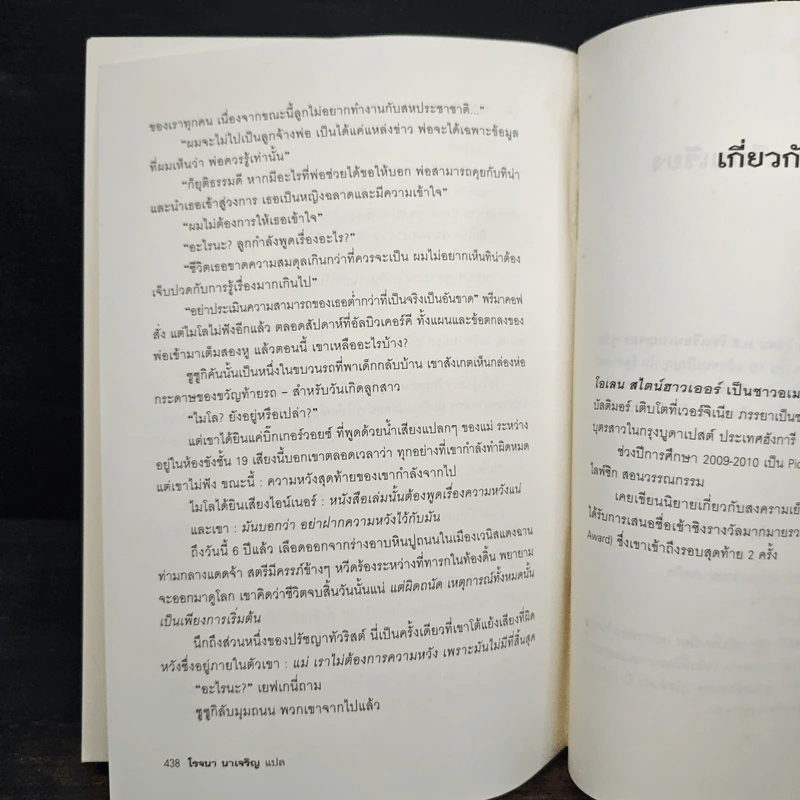 ของเราทุกคน เนื่องจากขณะนี้ลูกไม่อยากทำงานกับสหประชาชาติ..."
"ผมจะไม่ไปเป็นลูกจ้างพ่อ เป็นได้แค่แหล่งข่าว พ่อจะได้เฉพาะข้อมูล
ที่ผมเห็นว่า พ่อควรรู้เท่านั้น"
"ก็ยุติธรรมดี หากมีอะไรที่พ่อช่วยได้ขอให้บอก พ่อสามารถคุยกับทีน่า
และนำเธอเข้าสู่วงการ เธอเป็นหญิงฉลาดและมีความเข้าใจ"
"ผมไม่ต้องการให้เธอเข้าใจ"
"อะไรนะ? ลูกกำลังพูดเรื่องอะไร?"
"ชีวิตเธอขาดความสมดุลเกินกว่าที่ควรจะเป็น ผมไม่อยากเห็นทีน่าต้อง
เจ็บปวดกับการรู้เรื่องมากเกินไป"
"อย่าประเมินความสามารถของเธอต่ำกว่าที่เป็นจริงเป็นอันขาด" พรีมาคอฟ
สั่ง แต่ไมโลไม่ฟังอีกแล้ว ตลอดสัปดาห์ที่อัลบิวเคอร์คี ทั้งแผนและข้อตกลงของ
พ่อเข้ามาเต็มสองหู แล้วตอนนี้ เขาเหลืออะไรบ้าง?
ซูซูกิคันนั้นเป็นหนึ่งในขบวนรถที่พาเด็กกลับบ้าน เขาสังเกตเห็นกล่องห่อ
กระดาษของขวัญท้ายรถ – สำหรับวันเกิดลูกสาว
"ไมโล? ยังอยู่หรือเปล่า?"
แต่เขาได้ยินแค่บิ๊กเกอร์วอยซ์ ที่พูดด้วยน้ำเสียงแปลกๆ ของแม่ ระหว่าง
อยู่ในห้องขังชั้น 19 เสียงนี้บอกเขาตลอดเวลาว่า ทุกอย่างที่เขากำลังทำผิดหมด
แต่เขาไม่ฟัง ขณะนี้ : ความหวังสุดท้ายของเขากำลังจากไป
ไมโลได้ยินเสียงไอน์เนอร์ : หนังสือเล่มนั้นต้องพูดเรื่องความหวังแน่
และเขา : มันบอกว่า อย่าฝากความหวังไว้กับมัน
ถึงวันนี้ 6 ปีแล้ว เลือดออกจากร่างอาบหินปูถนนในเมืองเวนิสแดงฉาน
ท่ามกลางแดดจ้า สตรีมีครรภ์ข้างๆ หวีดร้องระหว่างที่ทารกในท้องดิ้น พยายาม
จะออกมาดูโลก เขาคิดว่าชีวิตจบสิ้นวันนั้นแน่ แต่ผิดถนัด เหตุการณ์ทั้งหมดนั้น
เป็นเพียงการเริ่มต้น
นึกถึงส่วนหนึ่งของปรัชญาทัวริสต์ นี่เป็นครั้งเดียวที่เขาโต้แย้งเสียงที่ผิด
หวังซึ่งอยู่ภายในตัวเขา : แม่ เราไม่ต้องการความหวัง เพราะมันไม่มีที่สิ้นสุด
"อะไรนะ?" เยฟเกนี่ถาม
ซูซูกิลับมุมถนน พวกเขาจากไปแล้ว
438 โรจนา นาเจริญ แปล
เกี่ยวกั
โอเลน สไตน์ฮาวเออร์ เป็นชาวอเม
บัลติมอร์ เติบโตที่เวอร์จิเนีย ภรรยาเป็นช
บุตรสาวในกรุงบูดาเปสต์ ประเทศฮังการี
ช่วงปีการศึกษา 2009-2010 เป็น Pic
ไลฟ์ซิก สอนวรรณกรรม
เคยเขียนนิยายเกี่ยวกับสงครามเย็
ได้รับการเสนอชื่อเข้าชิงรางวัลมากมายรว
Award) ซึ่งเขาเข้าถึงรอบสุดท้าย 2 ครั้ง